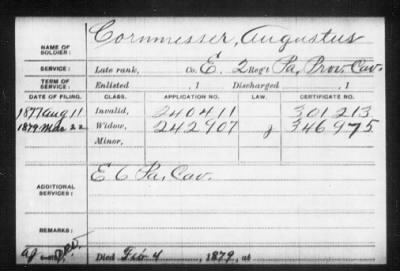 Cornmesser, Augustus
NAME OF SOLDIER:
SERVICE: Late rank, Co. E. 2 Reg't Pa. Prov. Cav.
TERM OF SERVICE: Enlisted , 1 Discharged , 1
DATE OF FILING. CLASS. APPLICATION NO. LAW. CERTIFICATE NO.
1877 Aug 11 Invalid, 240411 301213
1879 Mar 22 Widow, 242907 346975
Minor,
ADDITIONAL SERVICES: E 6 Pa. Cav.
REMARKS:
Died Feb 4 , 1879, at